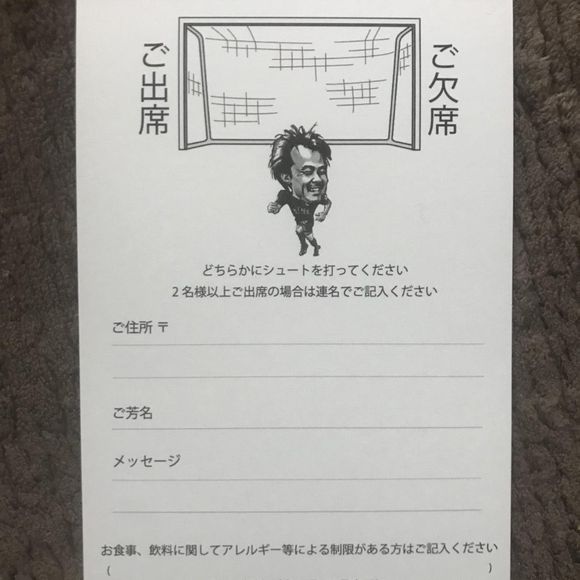 ご出席
ご欠席
どちらかにシュートを打ってください
2名様以上ご出席の場合は連名でご記入ください
ご住所 〒
ご芳名
メッセージ
お食事、飲料に関してアレルギー等による制限がある方はご記入ください
( )